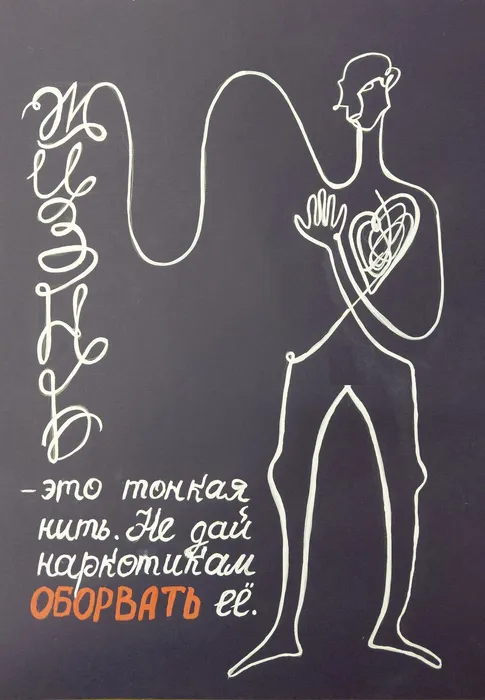 Жизнь
– это тонкая
нить. Не дай
наркотикам
ОБОРВАТЬ её.